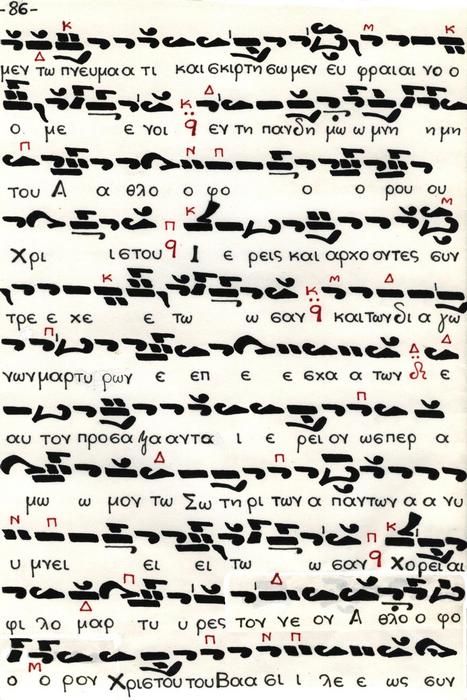 -86-
μεν τω πνευμα α τι και σκιρτη σω μεν ευ φραι αι νο ο
ο με ε νοι ϙ εν τη πανδη μω ω μνη η μη
του Α α θλο ο φο ο ο ρου ου
Χρι ι στου ϙ Ι ε ρεις και αρχο οντες συν
τρε ε χε ε τω ω σαν ϙ και των δι α γω
νων μαρτυ ρων ε επ ε ε σχα α των ε
αυ τον προσα γα α ντα ι ε ρει ον ωσπερ α
μω ω μον τω Σω τη ρι των α παντων α α νυ
υ μνει ει ει τω ω σαν ϙ Χορει αι
φι λο μαρ τυ υ ρες τον νε ον Α θλο ο φο
ο ο ρον Χριστου του Βα α σι ι λε ε ως συν